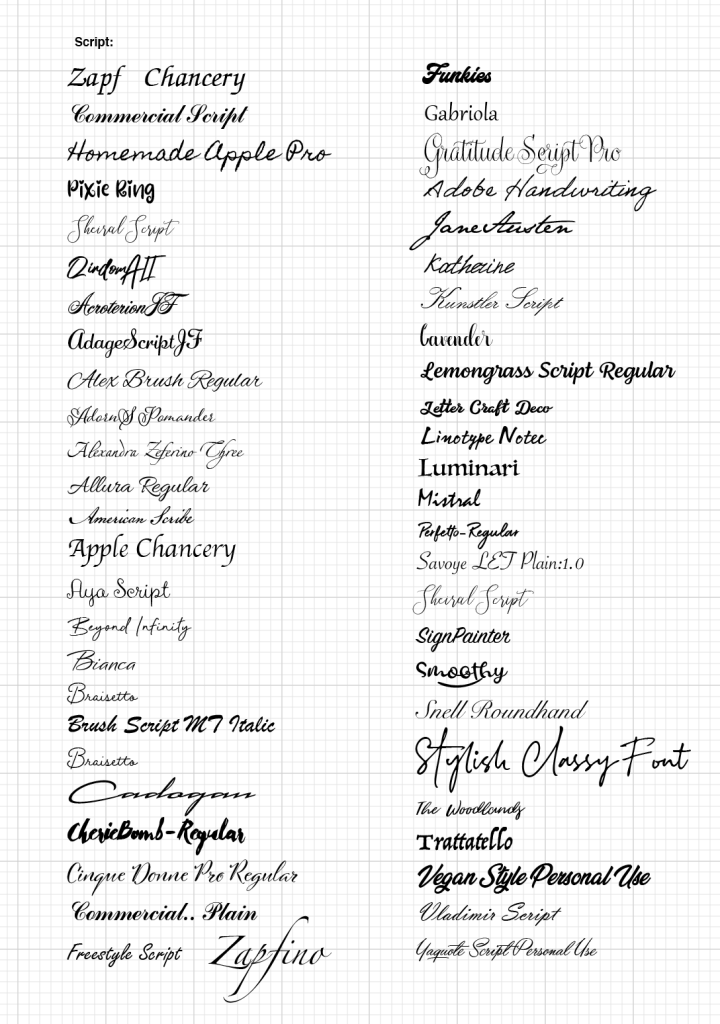 Script:
Zapf Chancery
Commercial Script
Homemade Apple Pro
Pixie Ring
Sheiral Script
QirdomAIT
AcroterionJF
AdageScriptJF
Alex Brush Regular
AdornS Pomander
Alexandra Zeferino Three
Allura Regular
American Scribe
Apple Chancery
Aya Script
Beyond Infinity
Bianca
Braisetto
Brush Script MT Italic
Braisetto
Cadogan
CherieBomb-Regular
Cinque Donne Pro Regular
Commercial.. Plain
Freestyle Script Zapfino
Funkies
Gabriola
Gratitude Script Pro
Adobe Handwriting
Jane Austen
Katherine
Kunstler Script
Lavender
Lemongrass Script Regular
Letter Craft Deco
Linotype Notec
Luminari
Mistral
Perfetto-Regular
Savoye LET Plain:1.0
Sheiral Script
SignPainter
Smoothy
Snell Roundhand
Stylish Classy Font
The Woodlands
Trattatello
Vegan Style Personal Use
Vladimir Script
Yaquote Script Personal Use